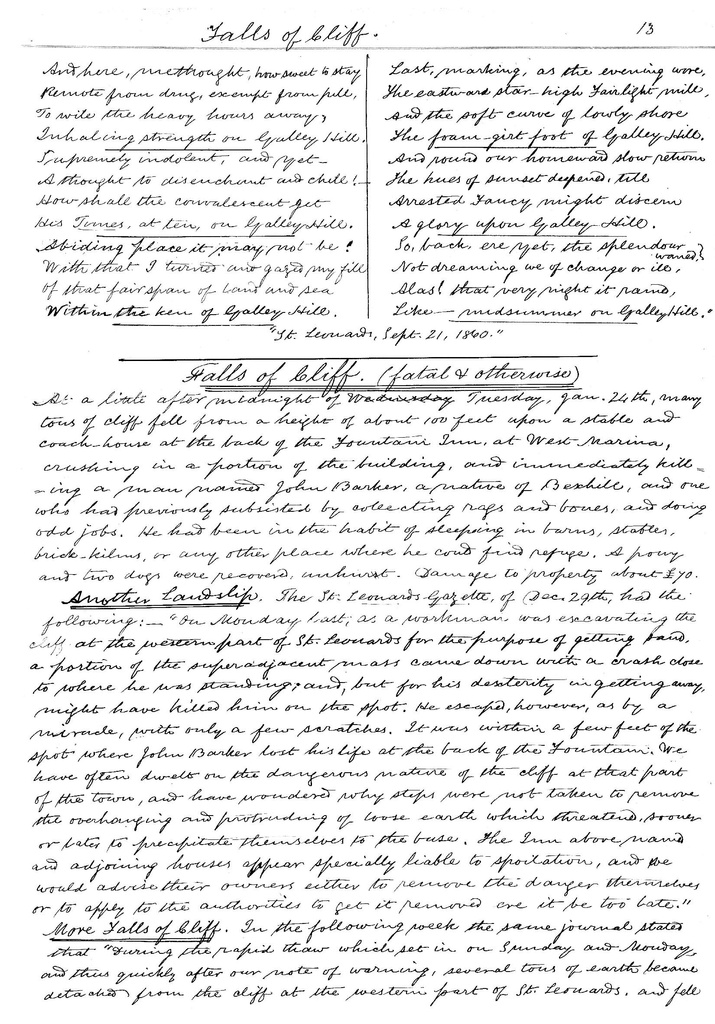 Falls of Cliff. 13
And here, methought, how sweet to stay
Remote from drug, exempt from pill,
To wile the heavy hours away,
Inhaling strength on Galley Hill.
Supremely indolent, and yet—
A thought to disenchant and chill!—
How shall the convalescent get
His Times, at ten, on Galley Hill.
Abiding place it may not be!
With that I turned and gazed my fill
Of that fair span of land and sea
Within the ken of Galley Hill.
Last, marking, as the evening wore,
The eastward star-high Fairlight mill,
And the soft curve of lowly shore
The foam-girt foot of Galley Hill.
And round our homeward slow return
The hues of sunset depened, till
Arrested Fancy might discern
A glory upon Galley Hill.
So, back, ere yet, the splendour waned?
Not dreaming we of change or ill,
Alas! that very night it raind,
Like — midsummer on Galley Hill."
"St. Leonards, Sept. 21, 1860."
Falls of Cliff. (fatal & otherwise)
At a little after midnight of Wednesday Tuesday, Jan. 24th, many
tons of cliff fell from a height of about 100 feet upon a stable and
coach-house at the back of the Fountain Inn, at West Marina,
crushing in a portion of the building, and immediately kill=
=ing a man named John Barker, a native of Bexhill, and one
who had previously subsisted by collecting rags and bones, and doing
odd jobs. He had been in the habit of sleeping in barns, stables,
brick-kilns, or any other place where he coud find refuge. A pony
and two dogs were recovered, unhurst. Damage to property about £70.
Another Landslip. The St. Leonards Gazette, of Dec. 29th, had the
following:— "On Monday last, as a workman was excavating the
cliff at the western part of St. Leonards for the purpose of getting sand,
a portion of the superadjacent mass came down with a crash close
to where he was standing; and, but for his dexterity in getting away,
might have killed him on the spot. He escaped, however, as by a
miracle, with only a few scratches. It was within a few feet of the
spot where John Barker lost his life at the back of the Fountain. We
have often dwelt on the dangerous nature of the cliff at that part
of the town, and have wondered why steps were not taken to remove
the overhanging and protruding of loose earth which threatend, sooner
or later to precipitate themselves to the base. The Inn above named
and adjoining houses appear specially liable to spoliation, and we
would advise their owners either to remove the danger themselves
or to apply to the authorities to get it removed ere it be too late."
More Falls of Cliff. In the following week the same journal stated
that "During the rapid thaw which set in on Sunday and Monday,
and thus quickly after our note of warning, several tons of earth became
detached from the cliff at the western part of St. Leonards, and fell